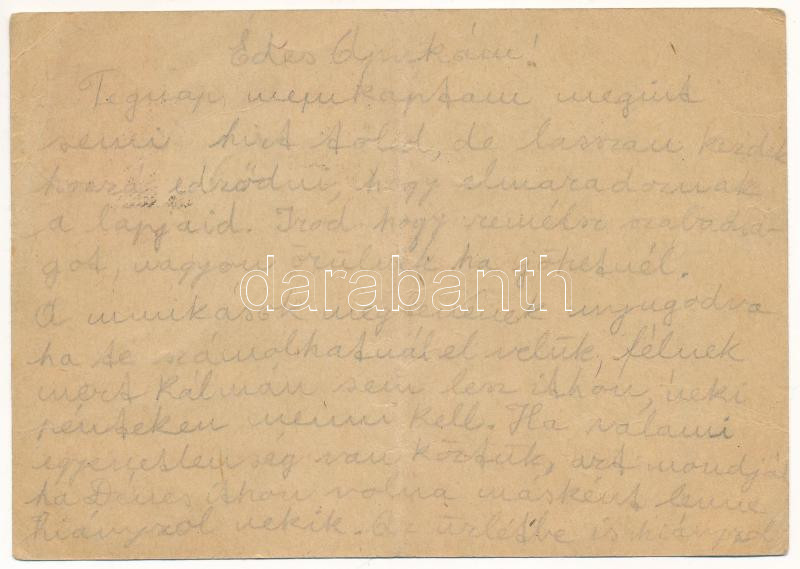 Édes Apukám!
Tegnap nemkaptam megint
semi hirt töled, de lasszan kezdek
hozzá edzödni, hogy elmaradoznak
a lapjaid. Irod hogy remélsz szabadsá-
got, nagyon örülnék ha jöhetnél.
darabanth
A munkások meglennének nyugodva
ha te számolhatnál el velük, félnek
mert Kálmán sem lesz itthon, neki
pénteken menni kell. Ha valami
egyenetlenség van köztük, azt mondják
ha Dénes itthon volna másként lenne
hiányzol nekik. Az üzletbe is hiányzol